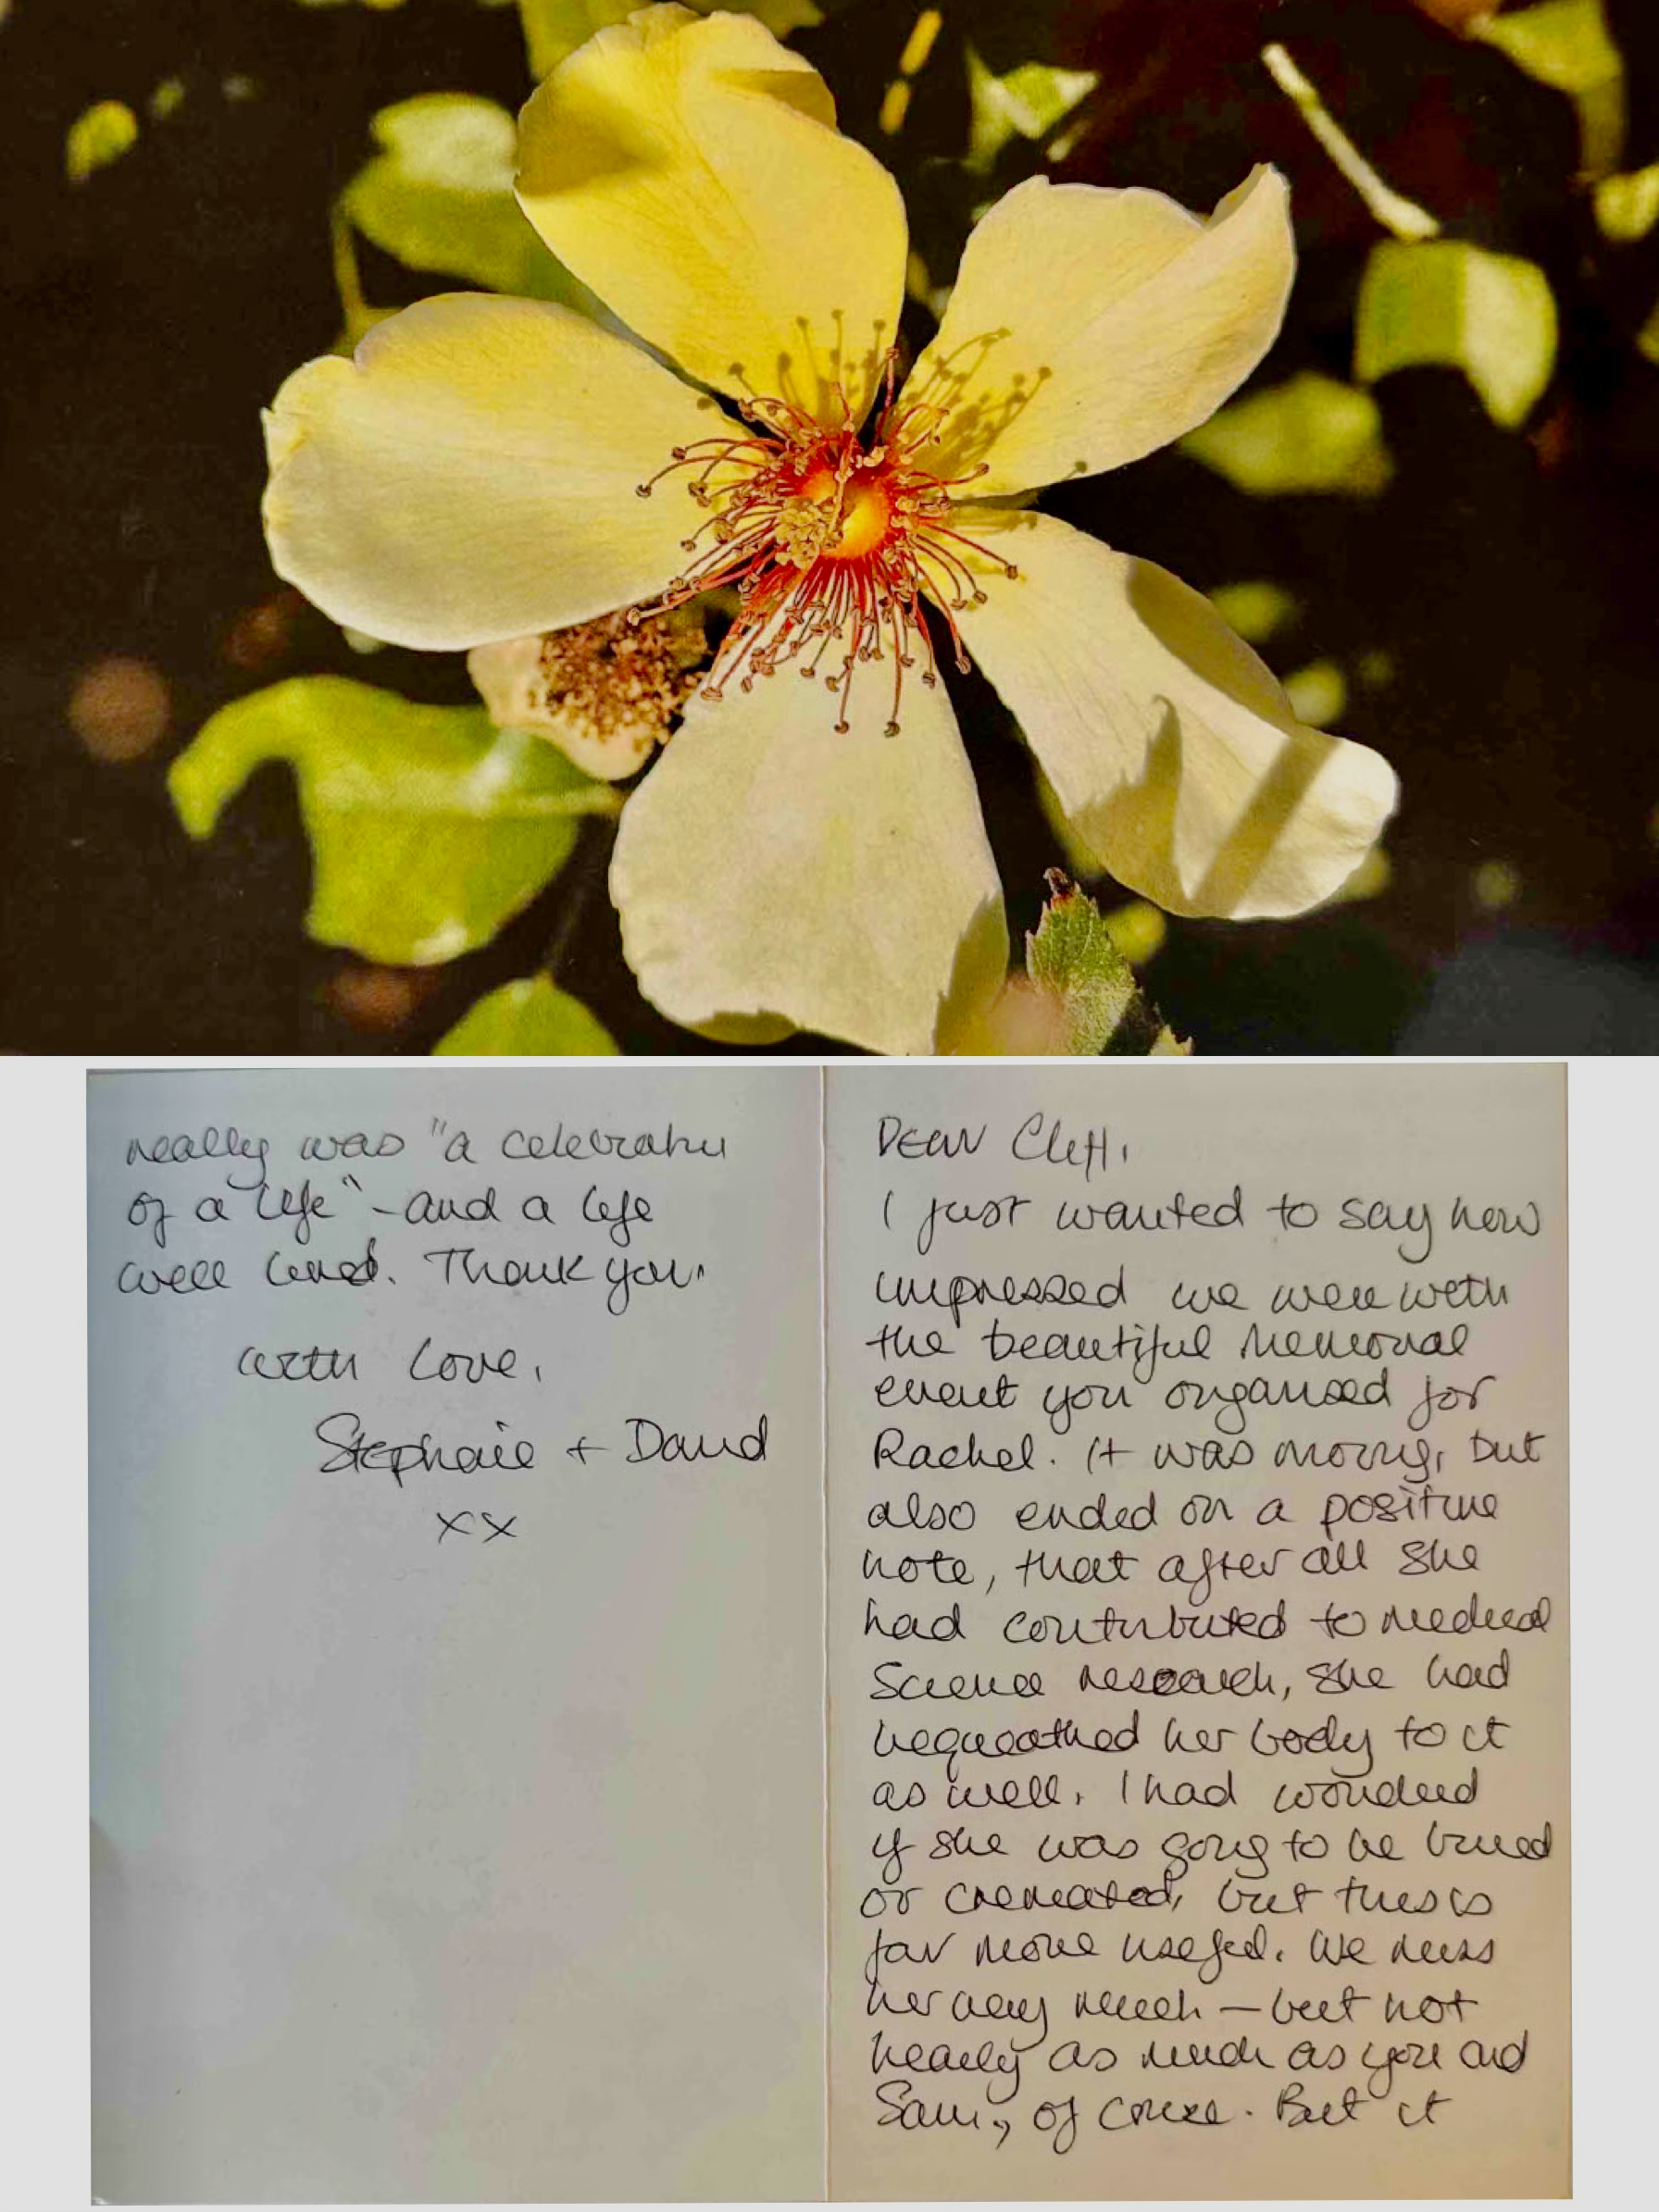 Dear Cliff,
I just wanted to say how
impressed we were with
the beautiful memorial
event you organised for
Rachel. It was moving, but
also ended on a positive
note, that after all she
had contributed to medical
science research, she had
bequeathed her body to it
as well. I had wondered
if she was going to be buried
or cremated, but this is
far more useful. We miss
her very much – but not
nearly as much as you and
Sam, of course. But it
really was "a celebration
of a life" – and a life
well lived. Thank you.
with love,
Stephanie + David
xx